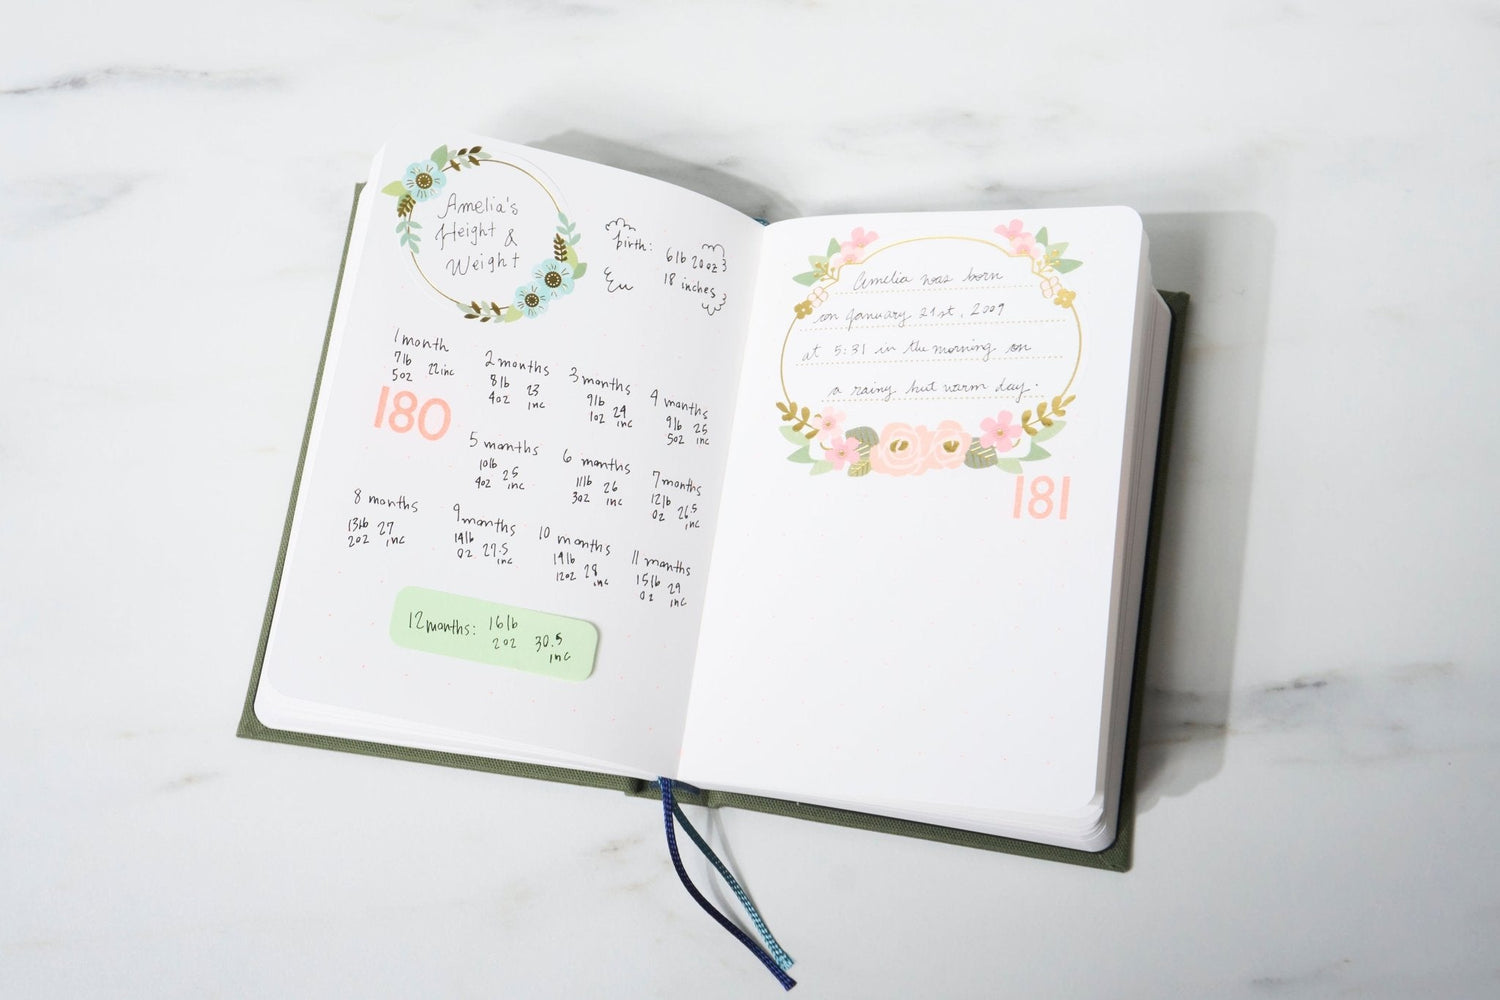 Amelia's
Height &
Weight
birth: 6lb 20oz
18 inches
1 month
7lb
5oz 22inc
2 months
8lb 23
4oz inc
3 months
9lb 24
1oz inc
4 months
9lb 25
5oz inc
180
5 months
10lb 25
4oz inc
6 months
11lb 26
3oz inc
7 months
12lb 26.5
0z inc
8 months
13lb 27
2oz inc
9 months
14lb
0z 27.5
inc
10 months
14lb 28
12oz inc
11 months
15lb 29
0z inc
12 months: 16lb
2oz 30.5
inc
Amelia was born
on January 21st, 2009
at 5:31 in the morning on
a rainy but warm day.
181